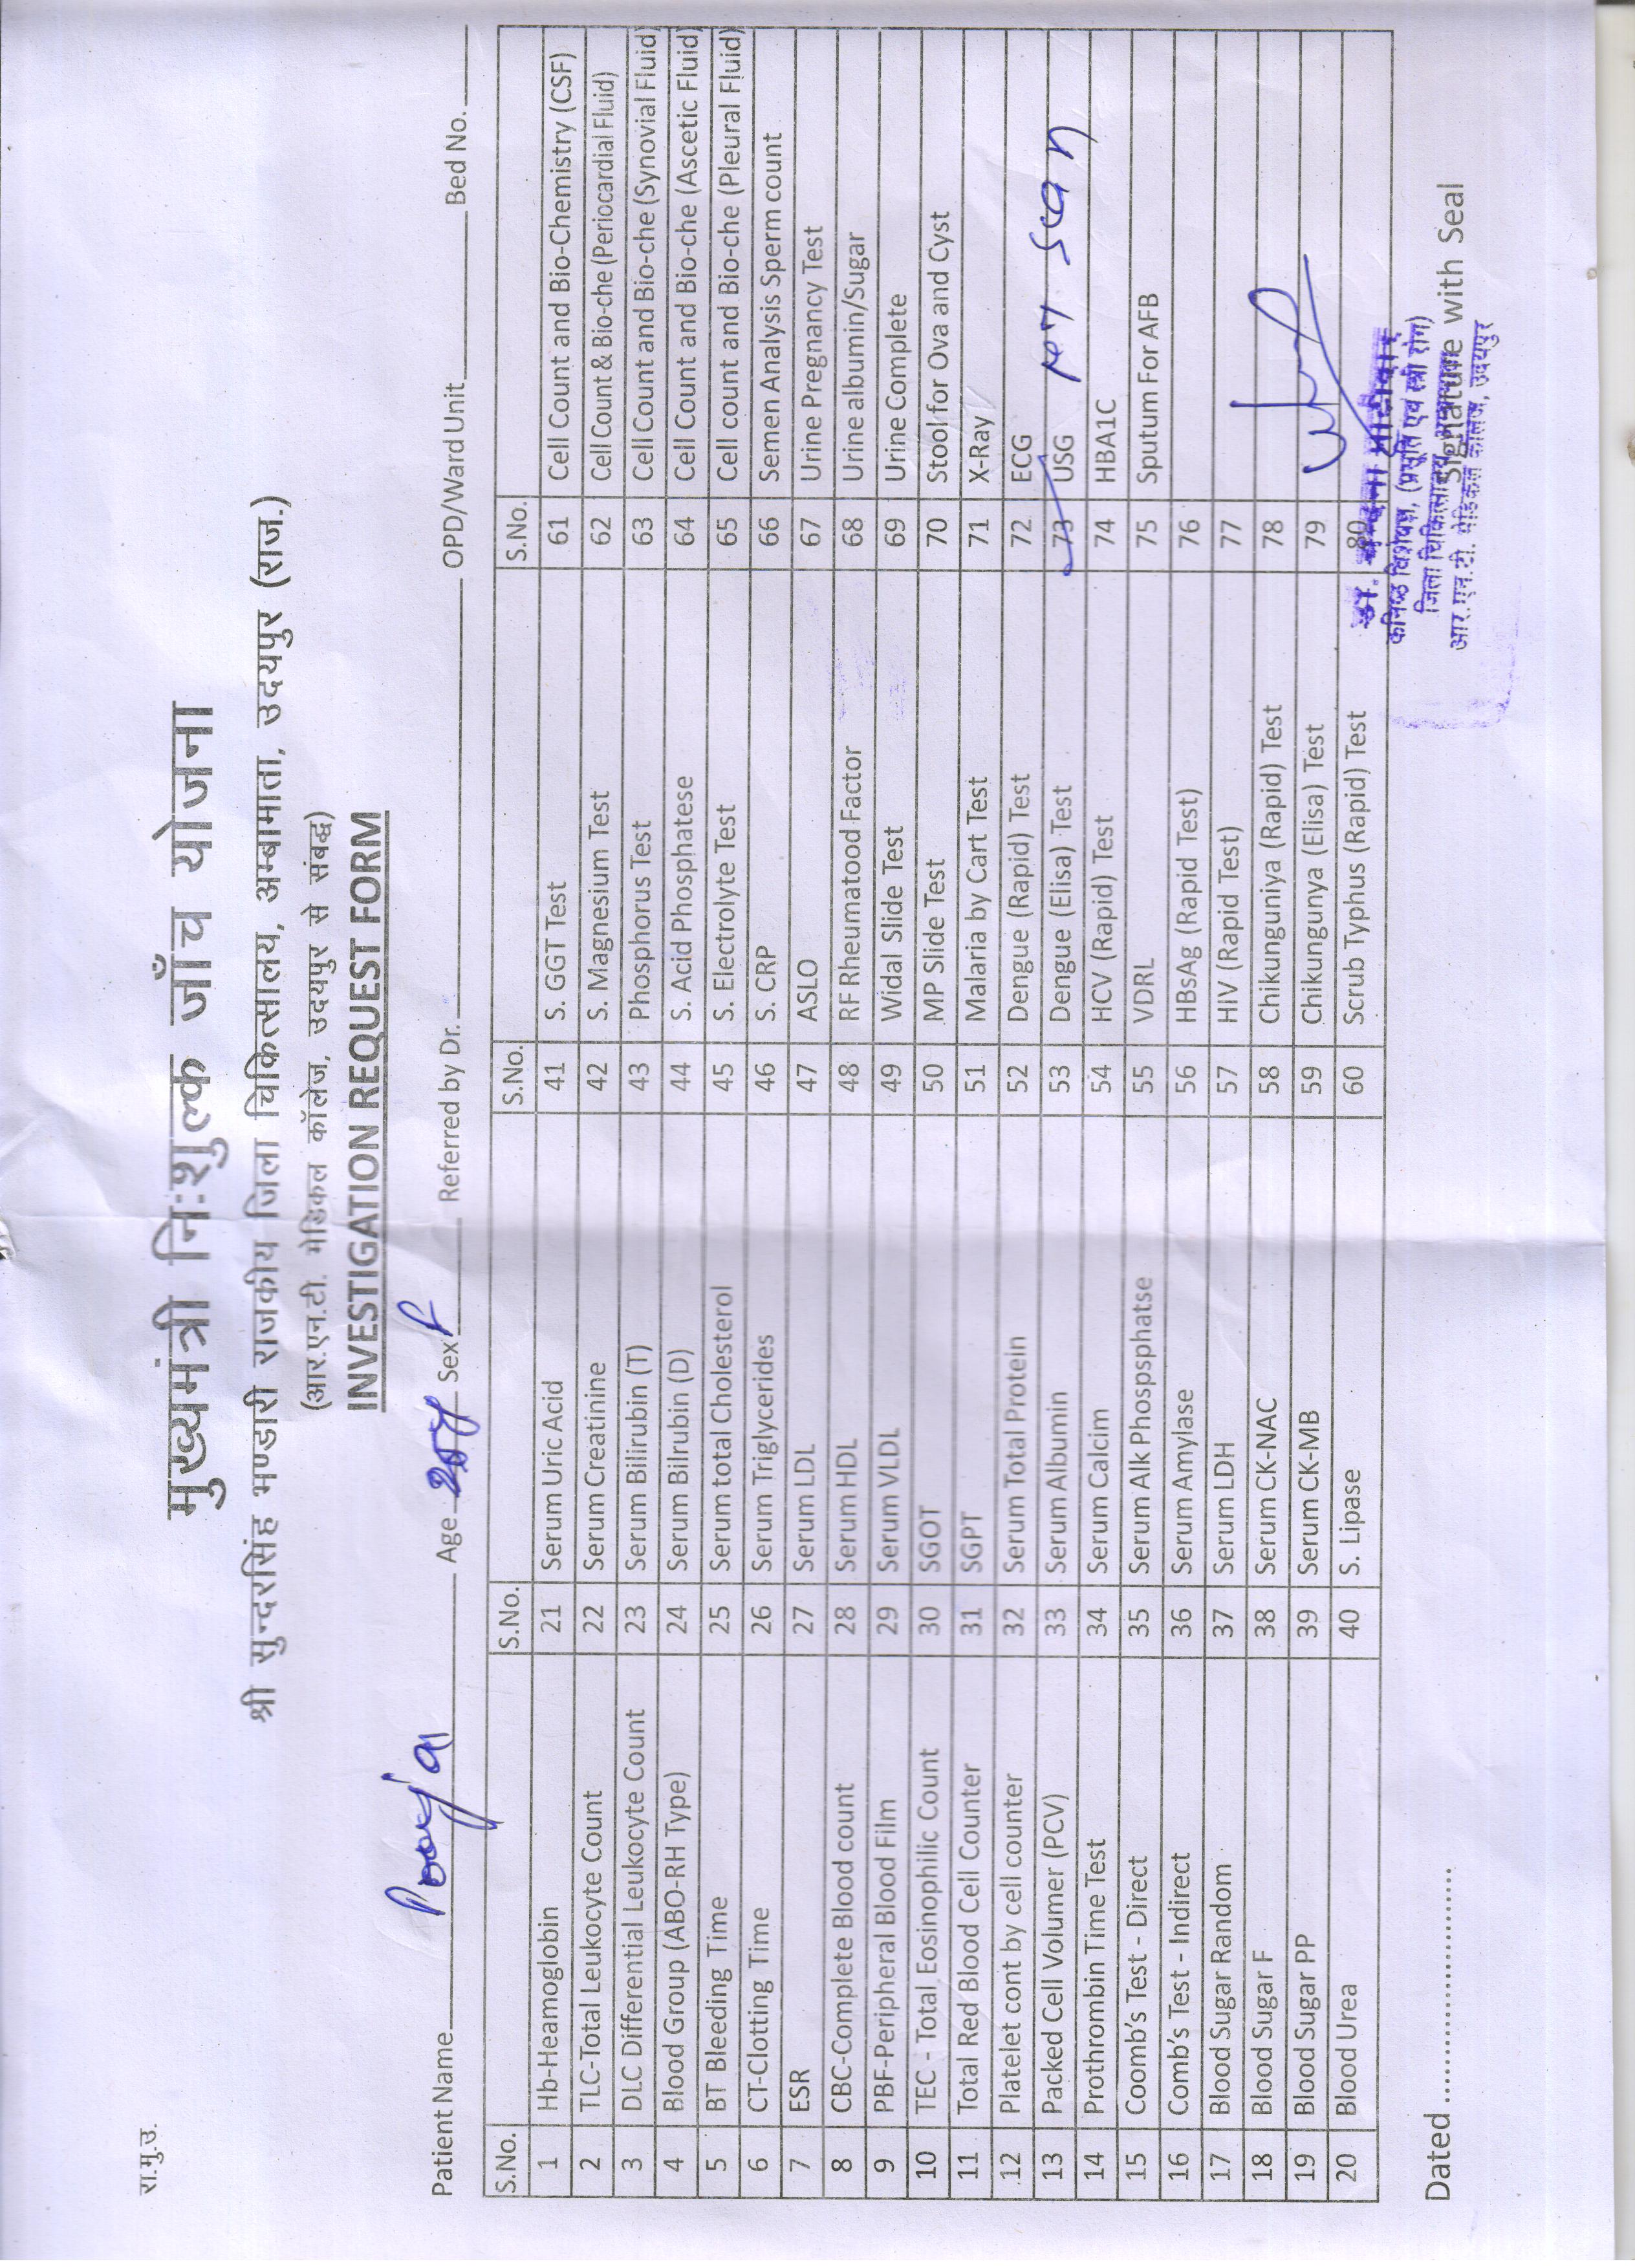 रा.मु.उ.
मुख्यमंत्री निःशुल्क जाँच योजना
श्री सुन्दरसिंह भण्डारी राजकीय जिला चिकित्सालय, अम्बामाता, उदयपुर (राज.)
(आर.एन.टी. मेडिकल कॉलेज, उदयपुर से संबद्ध)
INVESTIGATION REQUEST FORM
Patient Name Pooja Age Sex F Referred by Dr. OPD/Ward Unit Bed No.
S.No. S.No. S.No. S.No.
1 Hb-Heamoglobin 21 Serum Uric Acid 41 S. GGT Test 61 Cell Count and Bio-Chemistry (CSF)
2 TLC-Total Leukocyte Count 22 Serum Creatinine 42 S. Magnesium Test 62 Cell Count & Bio-che (Periocardial Fluid)
3 DLC Differential Leukocyte Count 23 Serum Bilirubin (T) 43 Phosphorus Test 63 Cell Count and Bio-che (Synovial Fluid)
4 Blood Group (ABO-RH Type) 24 Serum Bilrubin (D) 44 S. Acid Phosphatese 64 Cell Count and Bio-che (Ascetic Fluid)
5 BT Bleeding Time 25 Serum total Cholesterol 45 S. Electrolyte Test 65 Cell count and Bio-che (Pleural Fluid)
6 CT-Clotting Time 26 Serum Triglycerides 46 S. CRP 66 Semen Analysis Sperm count
7 ESR 27 Serum LDL 47 ASLO 67 Urine Pregnancy Test
8 CBC-Complete Blood count 28 Serum HDL 48 RF Rheumatood Factor 68 Urine albumin/Sugar
9 PBF-Peripheral Blood Film 29 Serum VLDL 49 Widal Slide Test 69 Urine Complete
10 TEC - Total Eosinophilic Count 30 SGOT 50 MP Slide Test 70 Stool for Ova and Cyst
11 Total Red Blood Cell Counter 31 SGPT 51 Malaria by Cart Test 71 X-Ray
12 Platelet cont by cell counter 32 Serum Total Protein 52 Dengue (Rapid) Test 72 ECG
13 Packed Cell Volumer (PCV) 33 Serum Albumin 53 Dengue (Elisa) Test 73 USG scan
14 Prothrombin Time Test 34 Serum Calcim 54 HCV (Rapid) Test 74 HBA1C
15 Coomb's Test - Direct 35 Serum Alk Phospsphatse 55 VDRL 75 Sputum For AFB
16 Comb's Test - Indirect 36 Serum Amylase 56 HBsAg (Rapid Test) 76
17 Blood Sugar Random 37 Serum LDH 57 HIV (Rapid Test) 77
18 Blood Sugar F 38 Serum CK-NAC 58 Chikunguniya (Rapid) Test 78
19 Blood Sugar PP 39 Serum CK-MB 59 Chikungunya (Elisa) Test 79
20 Blood Urea 40 S. Lipase 60 Scrub Typhus (Rapid) Test 80
डॉ.
कनिष्ठ विशेषज्ञ, (प्रसूति एवं स्त्री रोग)
जिला चिकित्सालय,
आर.एन.टी. मेडिकल कॉलेज, उदयपुर
Dated Signature with Seal